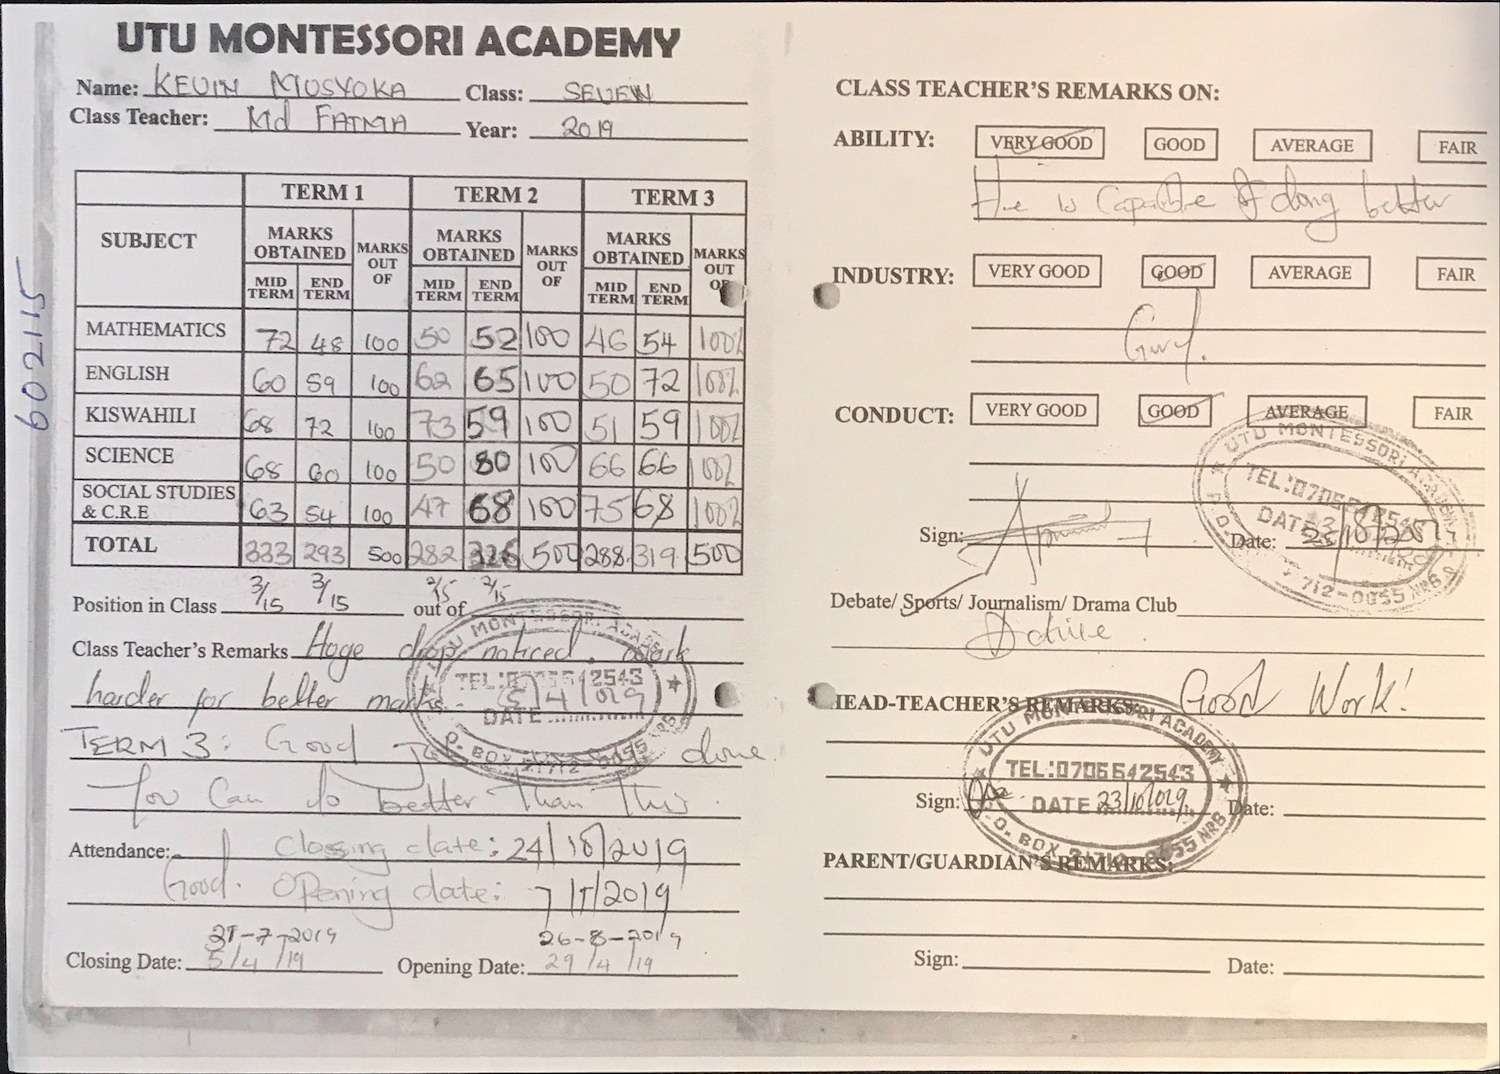 UTU MONTESSORI ACADEMY
Name: KEVIN MUSYOKA Class: SEVEN
Class Teacher: Md FATMA Year: 2019
602115
TERM 1 TERM 2 TERM 3
SUBJECT MARKS OBTAINED MARKS OUT OF MARKS OBTAINED MARKS OUT OF MARKS OBTAINED MARKS OUT OF
MID TERM END TERM MID TERM END TERM MID TERM END TERM
MATHEMATICS 72 48 100 50 52 100 46 54 100%
ENGLISH 60 59 100 62 65 100 50 72 100%
KISWAHILI 68 72 100 73 59 100 51 59 100%
SCIENCE 68 60 100 50 80 100 66 66 100%
SOCIAL STUDIES & C.R.E 63 54 100 47 68 100 75 68 100%
TOTAL 333 293 500 282 326 500 288 319 500
Position in Class 3/15 3/15 out of 2/15 2/15
Class Teacher's Remarks Huge drop noticed. Work
harder for better marks.
TERM 3: Good done.
You Can do better than this.
Attendance: Closing date: 24/10/2019
Good. Opening date: 2019
31-7-2019 26-8-2019
Closing Date: 5/4/19 Opening Date: 29/4/19
UTU MONTESSORI ACADEMY
TEL:0706642543
DATE 5/4/019
P.O. BOX 21712-0055 NRB
CLASS TEACHER'S REMARKS ON:
ABILITY: VERY GOOD GOOD AVERAGE FAIR
He is Capable of doing better
INDUSTRY: VERY GOOD GOOD AVERAGE FAIR
Good.
CONDUCT: VERY GOOD GOOD AVERAGE FAIR
UTU MONTESSORI ACADEMY
TEL:0706642543
DATE
Sign: Date:
Debate/ Sports/ Journalism/ Drama Club
Active.
HEAD-TEACHER'S REMARKS: Good Work!
UTU MONTESSORI ACADEMY
TEL:0706642543
Sign: DATE 23/10/019 Date:
P.O. BOX 21712-0055 NRB
PARENT/GUARDIAN'S REMARKS:
Sign: Date: